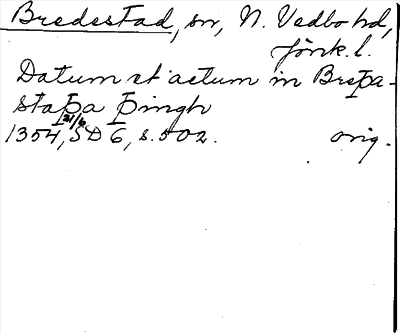 Bredestad, sn, N. Vedbo hd,
Jönk. l.
Datum et actum in Breþa-
staþa þingh
1354, 21/6 SD 6, s. 502. orig.